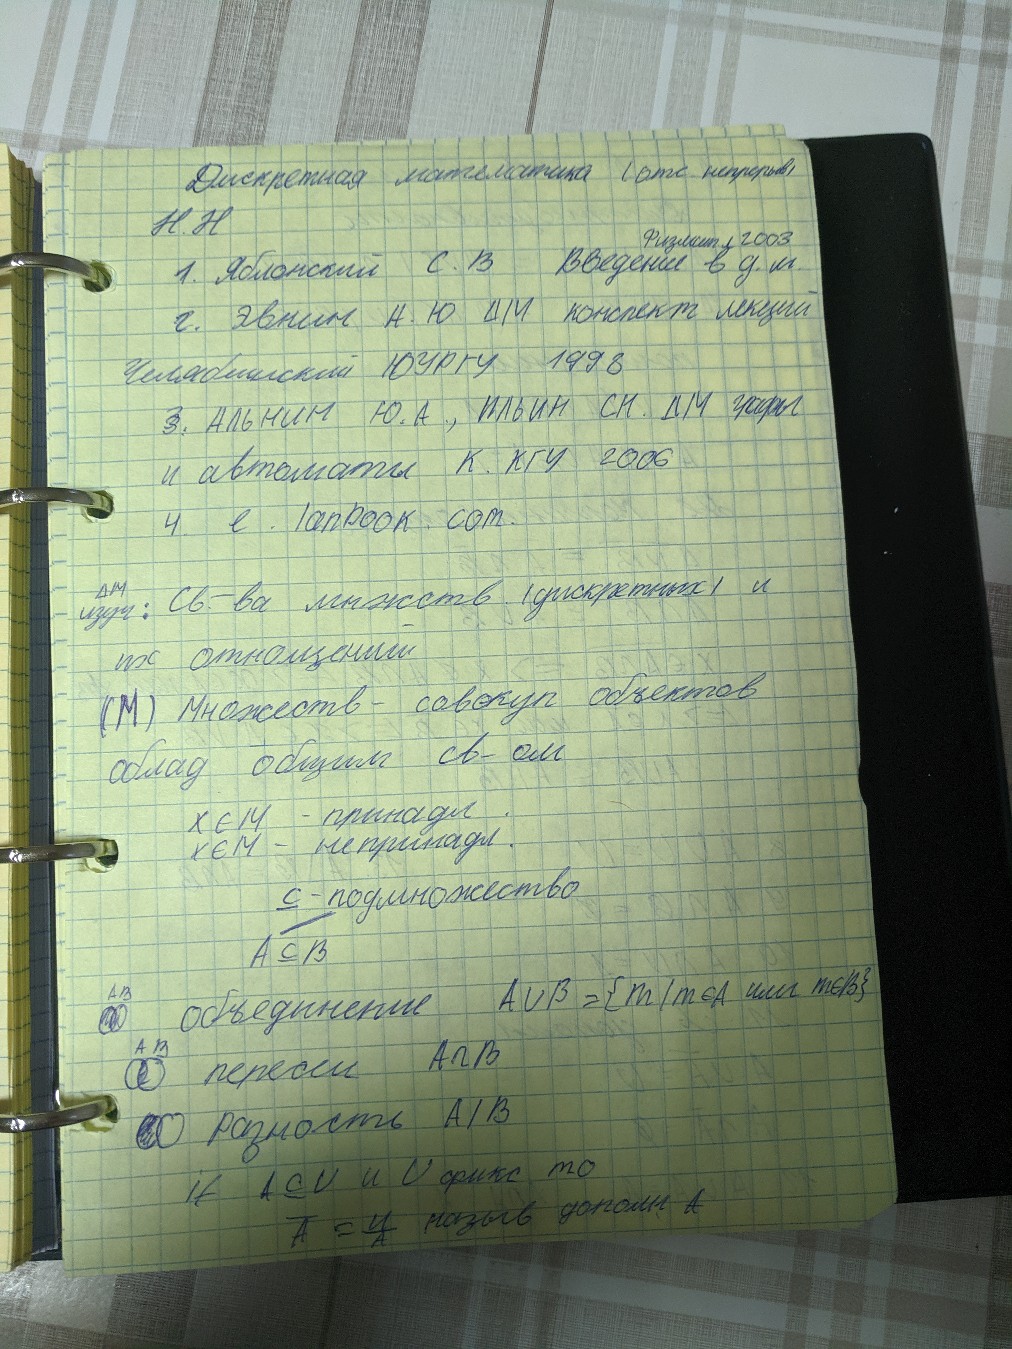 Дискретная математика (отс. непрерыв)
Н.Н
Физмат 2003
1. Яблонский С.В Введение в д.м.
2. Эвнин А.Ю ДМ конспект лекций
Челябинский ЮУРГУ 1998
3. АЛЬНИН Ю.А., ИЛЬИН СН. ДМ графы
и автоматы К. КГУ 2006
4. e.lanbook.com.
ДМ
изуч: Св-ва множств (дискретных) и
их отношений
(М) Множеств - совокуп объектов
облад общим св-ом
x∈M - принадл.
x∈M - непринадл.
⊆ - подмножество
A⊆B
A B
объединение A∪B = {m/m∈A или m∈B}
A B
пересеч A∩B
Разность A/B
if A⊆U и U фикс то
A̅ = U/A назыв дополн A